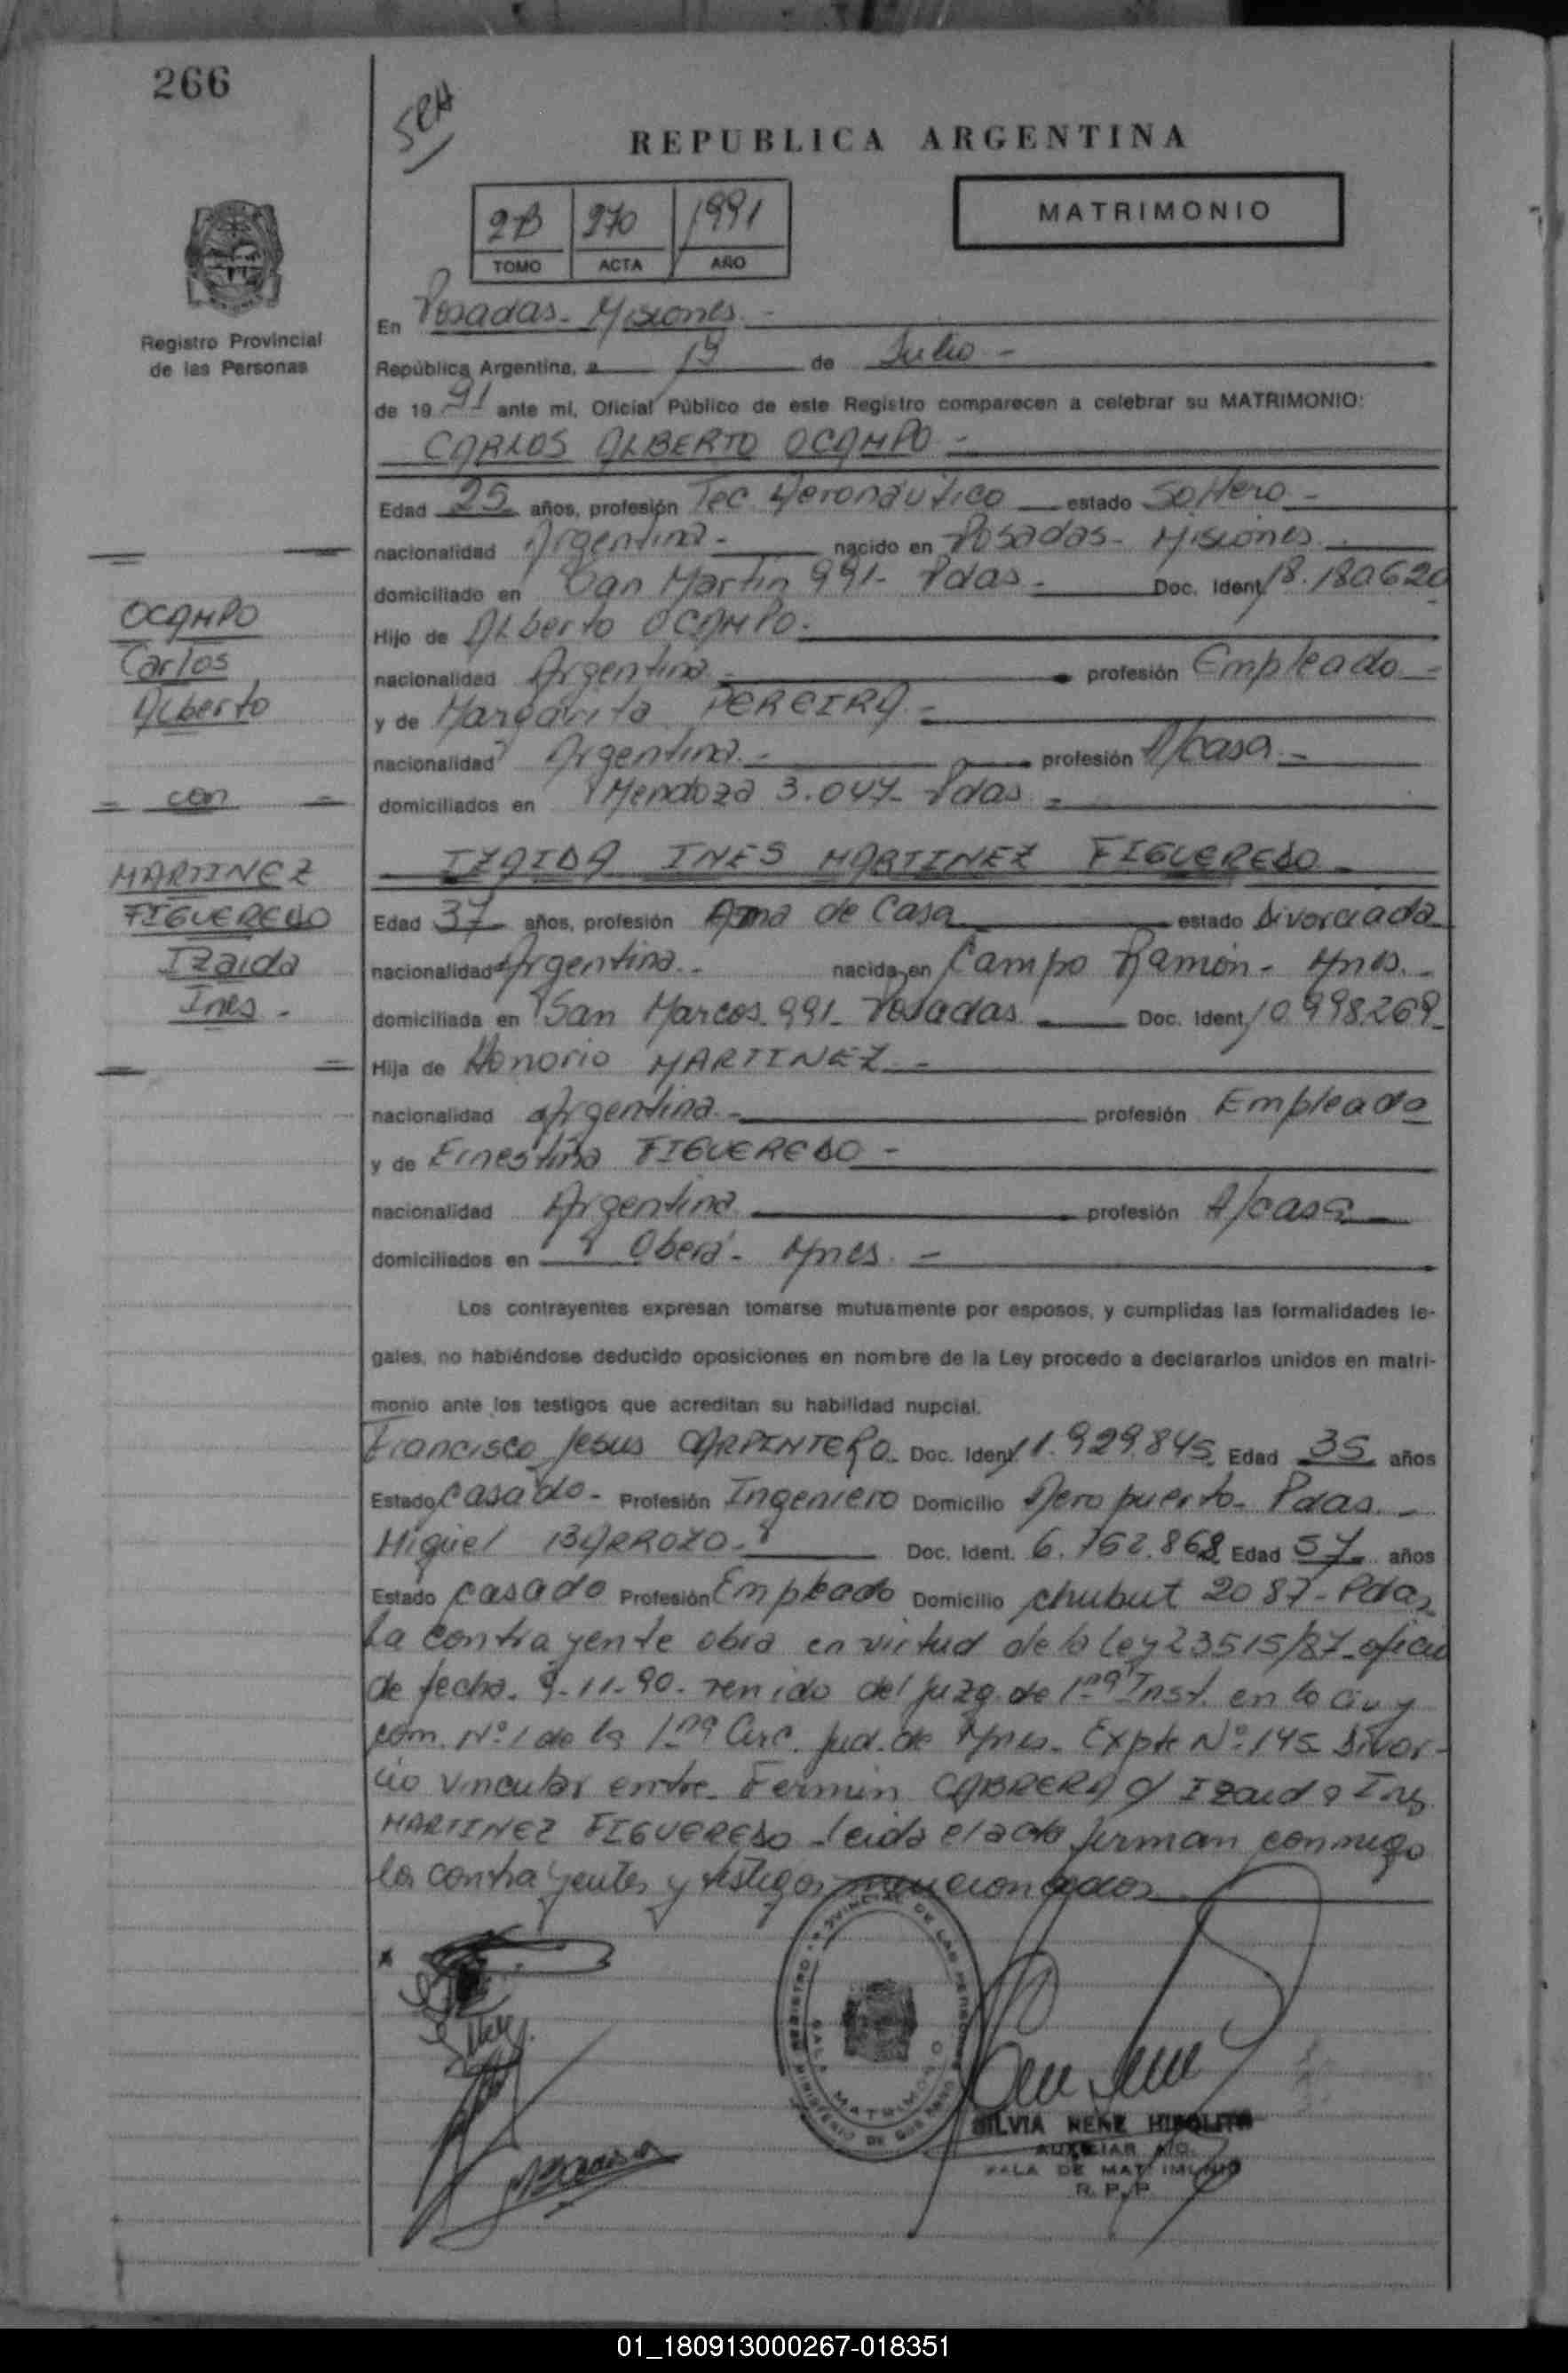 266
SEH
REPUBLICA ARGENTINA
MATRIMONIO
2B 270 1991
TOMO ACTA AÑO
Registro Provincial
de las Personas
En Posadas - Misiones. -
República Argentina, a 19 de Julio -
de 1991 ante mí, Oficial Público de este Registro comparecen a celebrar su MATRIMONIO:
CARLOS ALBERTO OCAMPO -
Edad 25 años, profesión Tec. Aeronáutico estado Soltero -
nacionalidad Argentina - nacido en Posadas - Misiones.
domiciliado en San Martín 991 - Pdas - Doc. Ident. 18.180.620
Hijo de Alberto OCAMPO.
nacionalidad Argentina - profesión Empleado -
y de Margarita PEREIRA -
nacionalidad Argentina. - profesión A/casa -
domiciliados en Mendoza 3.047 - Pdas -
OCAMPO
Carlos
Alberto
= con =
MARTINEZ
FIGUEREDO
Izaida
Ines -
IZAIDA INES MARTINEZ FIGUEREDO -
Edad 37 años, profesión Ama de Casa estado Divorciada
nacionalidad Argentina. - nacida en Campo Ramón - Mnes. -
domiciliada en San Marcos 991 - Posadas Doc. Ident. 10.998.269 -
Hija de Honorio MARTINEZ. -
nacionalidad Argentina. - profesión Empleado
y de Ernestina FIGUEREDO -
nacionalidad Argentina profesión A/casa
domiciliados en Oberá - Mnes. -
Los contrayentes expresan tomarse mutuamente por esposos, y cumplidas las formalidades le-
gales, no habiéndose deducido oposiciones en nombre de la Ley procedo a declararlos unidos en matri-
monio ante los testigos que acreditan su habilidad nupcial.
Francisco Jesus CARPINTERO. Doc. Ident. 11.929.845 Edad 35 años
Estado Casado - Profesión Ingeniero Domicilio Aeropuerto - Pdas. -
Miguel BARROZO - Doc. Ident. 6.762.868 Edad 57 años
Estado casado Profesión Empleado Domicilio chubut 2087 - Pdas
La contrayente obra en virtud de la Ley 23515/87 - oficio
de fecha. 9-11-90 - venido del Juzg. de 1ra Inst. en lo Civ. y
com. Nº 1 de la 1ra Circ. Jud. de Mnes. Expte Nº 145 Divor-
cio vincular entre Fermin CABRERA c/ Izaida Ines
MARTINEZ FIGUEREDO - leida el acta firman conmigo
los contrayentes y testigos mencionados
REGISTRO PROVINCIAL DE LAS PERSONAS
MINISTERIO DE GOBIERNO
SALA MATRIMONIO
SILVIA NENE HIPOLITO
AUXILIAR A/C.
SALA DE MATRIMONIO
R. P. P.
01_180913000267-018351